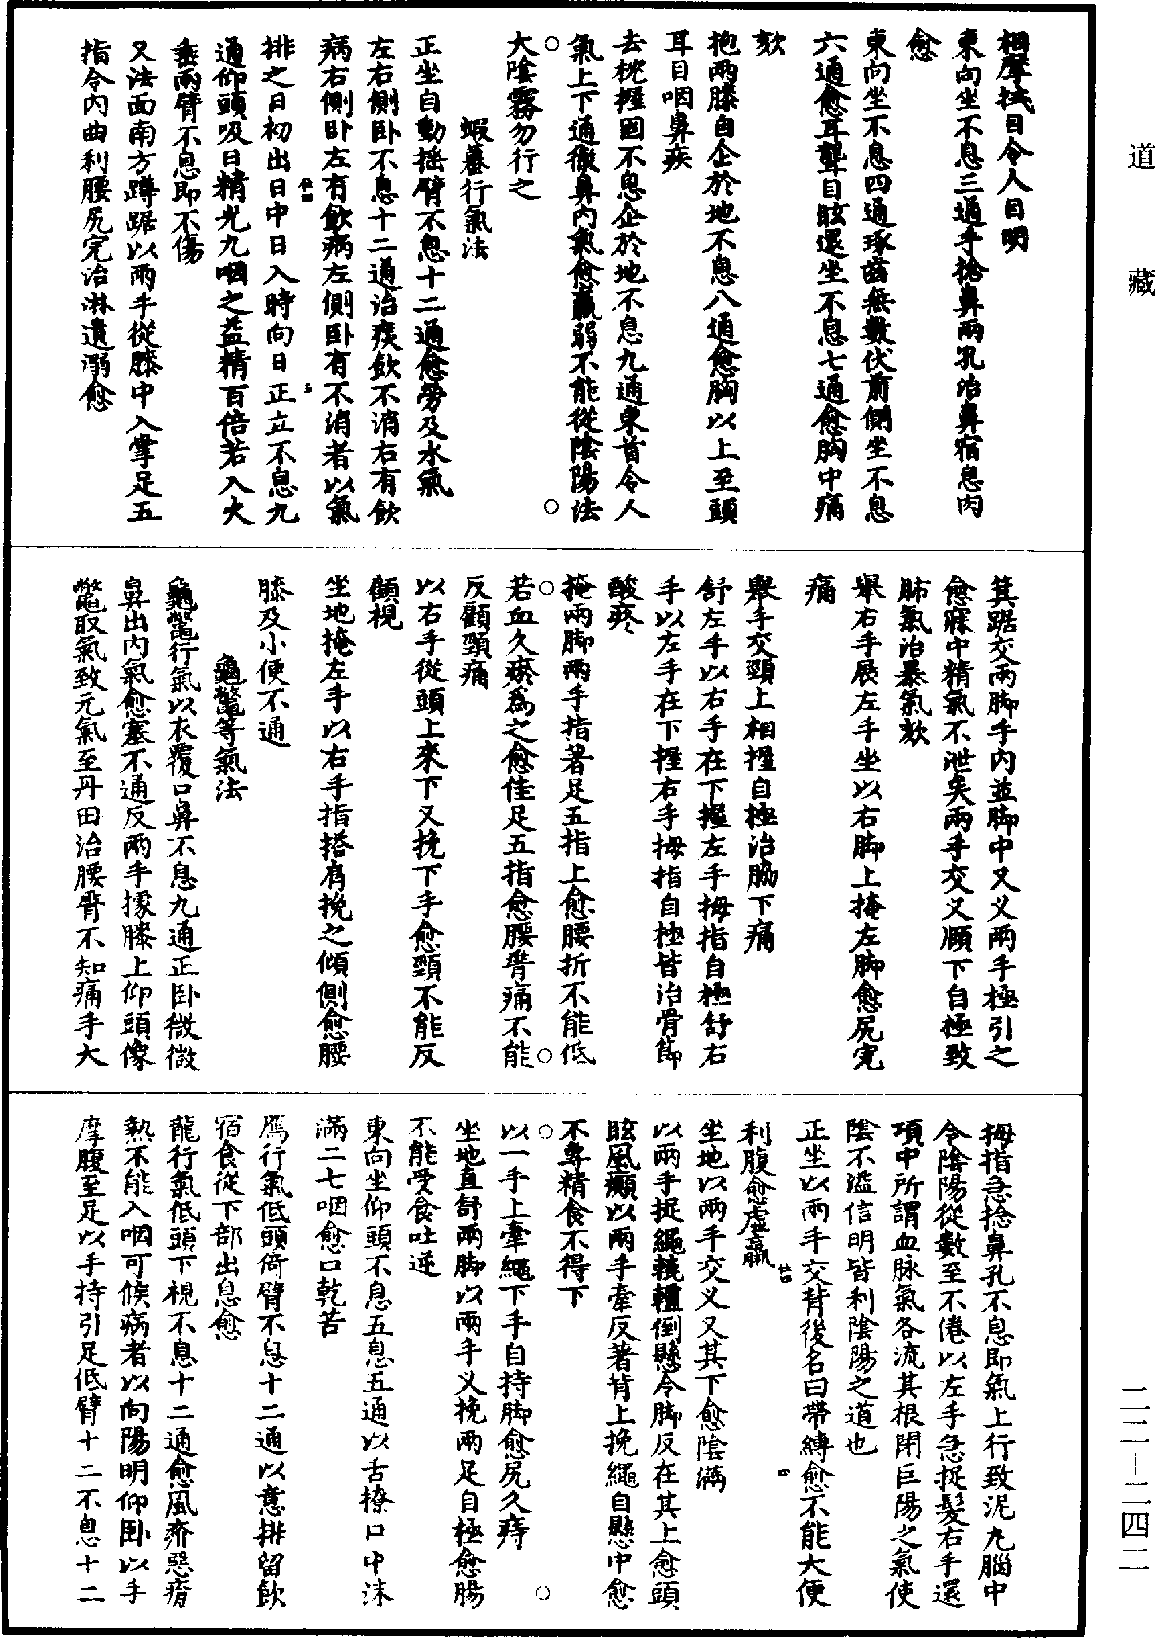 道藏
相摩拭目令人目明
東向坐不息三通手捻鼻兩孔治鼻宿息肉
愈
東向坐不息四通琢齒無數伏前側坐不息
六通愈耳聾目眩還坐不息七通愈胸中痛
欬
抱兩膝自企於地不息八通愈胸以上至頭
耳目咽鼻疾
去枕握固不息企於地不息九通東首令人
氣上下通徹鼻內氣愈羸弱不能從陰陽法
大陰霧勿行之
蝦蟇行氣法
正坐自動搖臂不息十二通愈勞及水氣
左右側卧不息十二通治痰飲不消右有飲
病右側卧左有飲病左側卧有不消者以氣
排之日初出日中日入時向日正立不息九
通仰頭吸日精光九咽之益精百倍若入火
垂兩臂不息即不傷
又法面南方蹲踞以兩手從膝中入掌足五
指令內曲利腰尻完治淋遺溺愈
箕踞交兩脚手內並脚中又叉兩手極引之
愈寐中精氣不泄矣兩手交叉頤下自極致
肺氣治暴氣欬
舉右手展左手坐以右脚上掩左脚愈尻完
痛
舉手交頸上相握自極治脇下痛
舒左手以右手在下握左手拇指自極舒右
手以左手在下握右手拇指自極皆治骨節
酸疼
掩兩脚兩手指著足五指上愈腰折不能低
若血久瘀為之愈佳足五指愈腰脊痛不能
反顧頸痛
以右手從頭上來下又挽下手愈頸不能反
顧視
坐地掩左手以右手指搭肩挽之傾側愈腰
膝及小便不通
龜鼈等氣法
龜鼈行氣以衣覆口鼻不息九通正卧微微
鼻出內氣愈塞不通反兩手據膝上仰頭像
鼈取氣致元氣至丹田治腰脊不知痛手大
拇指急捻鼻孔不息即氣上行致泥丸腦中
令陰陽從數至不倦以左手急捉髮右手還
項中所謂血脉氣各流其根閉巨陽之氣使
陰不溢信明皆利陰陽之道也
正坐以兩手交背後名曰帶縛愈不能大便
利腹愈虛羸
坐地以兩手交叉又其下愈陰滿
以兩手捉繩轆轤倒懸令脚反在其上愈頭
眩風癲以兩手牽反著背上挽繩自懸中愈
不專精食不得下
以一手上牽繩下手自持脚愈尻久痔
坐地直舒兩脚以兩手叉挽兩足自極愈腸
不能受食吐逆
東向坐仰頭不息五息五通以舌撩口中沫
滿二七咽愈口乾苦
鴈行氣低頭倚臂不息十二通以意排留飲
宿食從下部出息愈
龍行氣低頭下視不息十二通愈風疥惡瘡
熱不能入咽可候病者以向陽明仰卧以手
摩腹至足以手持引足低臂十二不息十二
二二—二四二